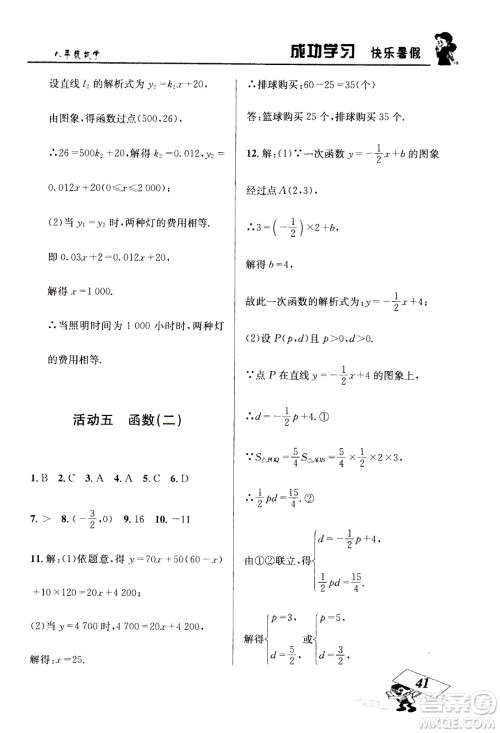 八年级数学
成功学习 快乐暑假
设直线 l₂ 的解析式为 y₂=k₂x+20,
由图象,得函数过点(500,26)
∴26=500k₂+20,解得 k₂=0.012
∴y₂=0.012x+20,
0.012x+20(0≤x).
(2)当 y₁=y₂ 时,两种灯的费用相等.
即 0.03x+2=0.012x+20,
解得 x=1 000.
∴当照明时间为 1 000 小时时,两种灯
的费用相等.
活动五 函数(二)
1.B 2.C 3.A 4.A 5.C 6.D
7.> 8.(-3/2,0) 9.16 10.-11
11.解:(1)依题意,得 y=70x+50(60-x)
+10×120=20x+4 200
(2)当 y=4 700 时,4 700=20x+4 200,
解得:x=25.
∴排球购买:60-25=35(个)
答:篮球购买 25 个,排球购买 35 个.
12.解:(1)∵一次函数 y=-1/2x+b 的图象
经过点 A(2,3),
∴3=(-1/2)×2+b,
解得 b=4,
故此一次函数的解析式为:y=-1/2x+4;
(2)设 P(p,d),p>0,d>0.
∵点 P 在直线 y=-1/2x+4 的图象上,
∴d=-1/2p+4.①
∵S△POQ=5/4S△AOB=5/4×1/2×2×3,
∴1/2pd=15/4.②
由①②联立,得{d=-1/2p+4 1/2pd=15/4
解得{p=3, d=5/2 或{p=5, d=3/2
41
答案圈